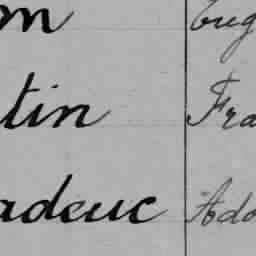 on Eug
tin Fra
adeuc Ado